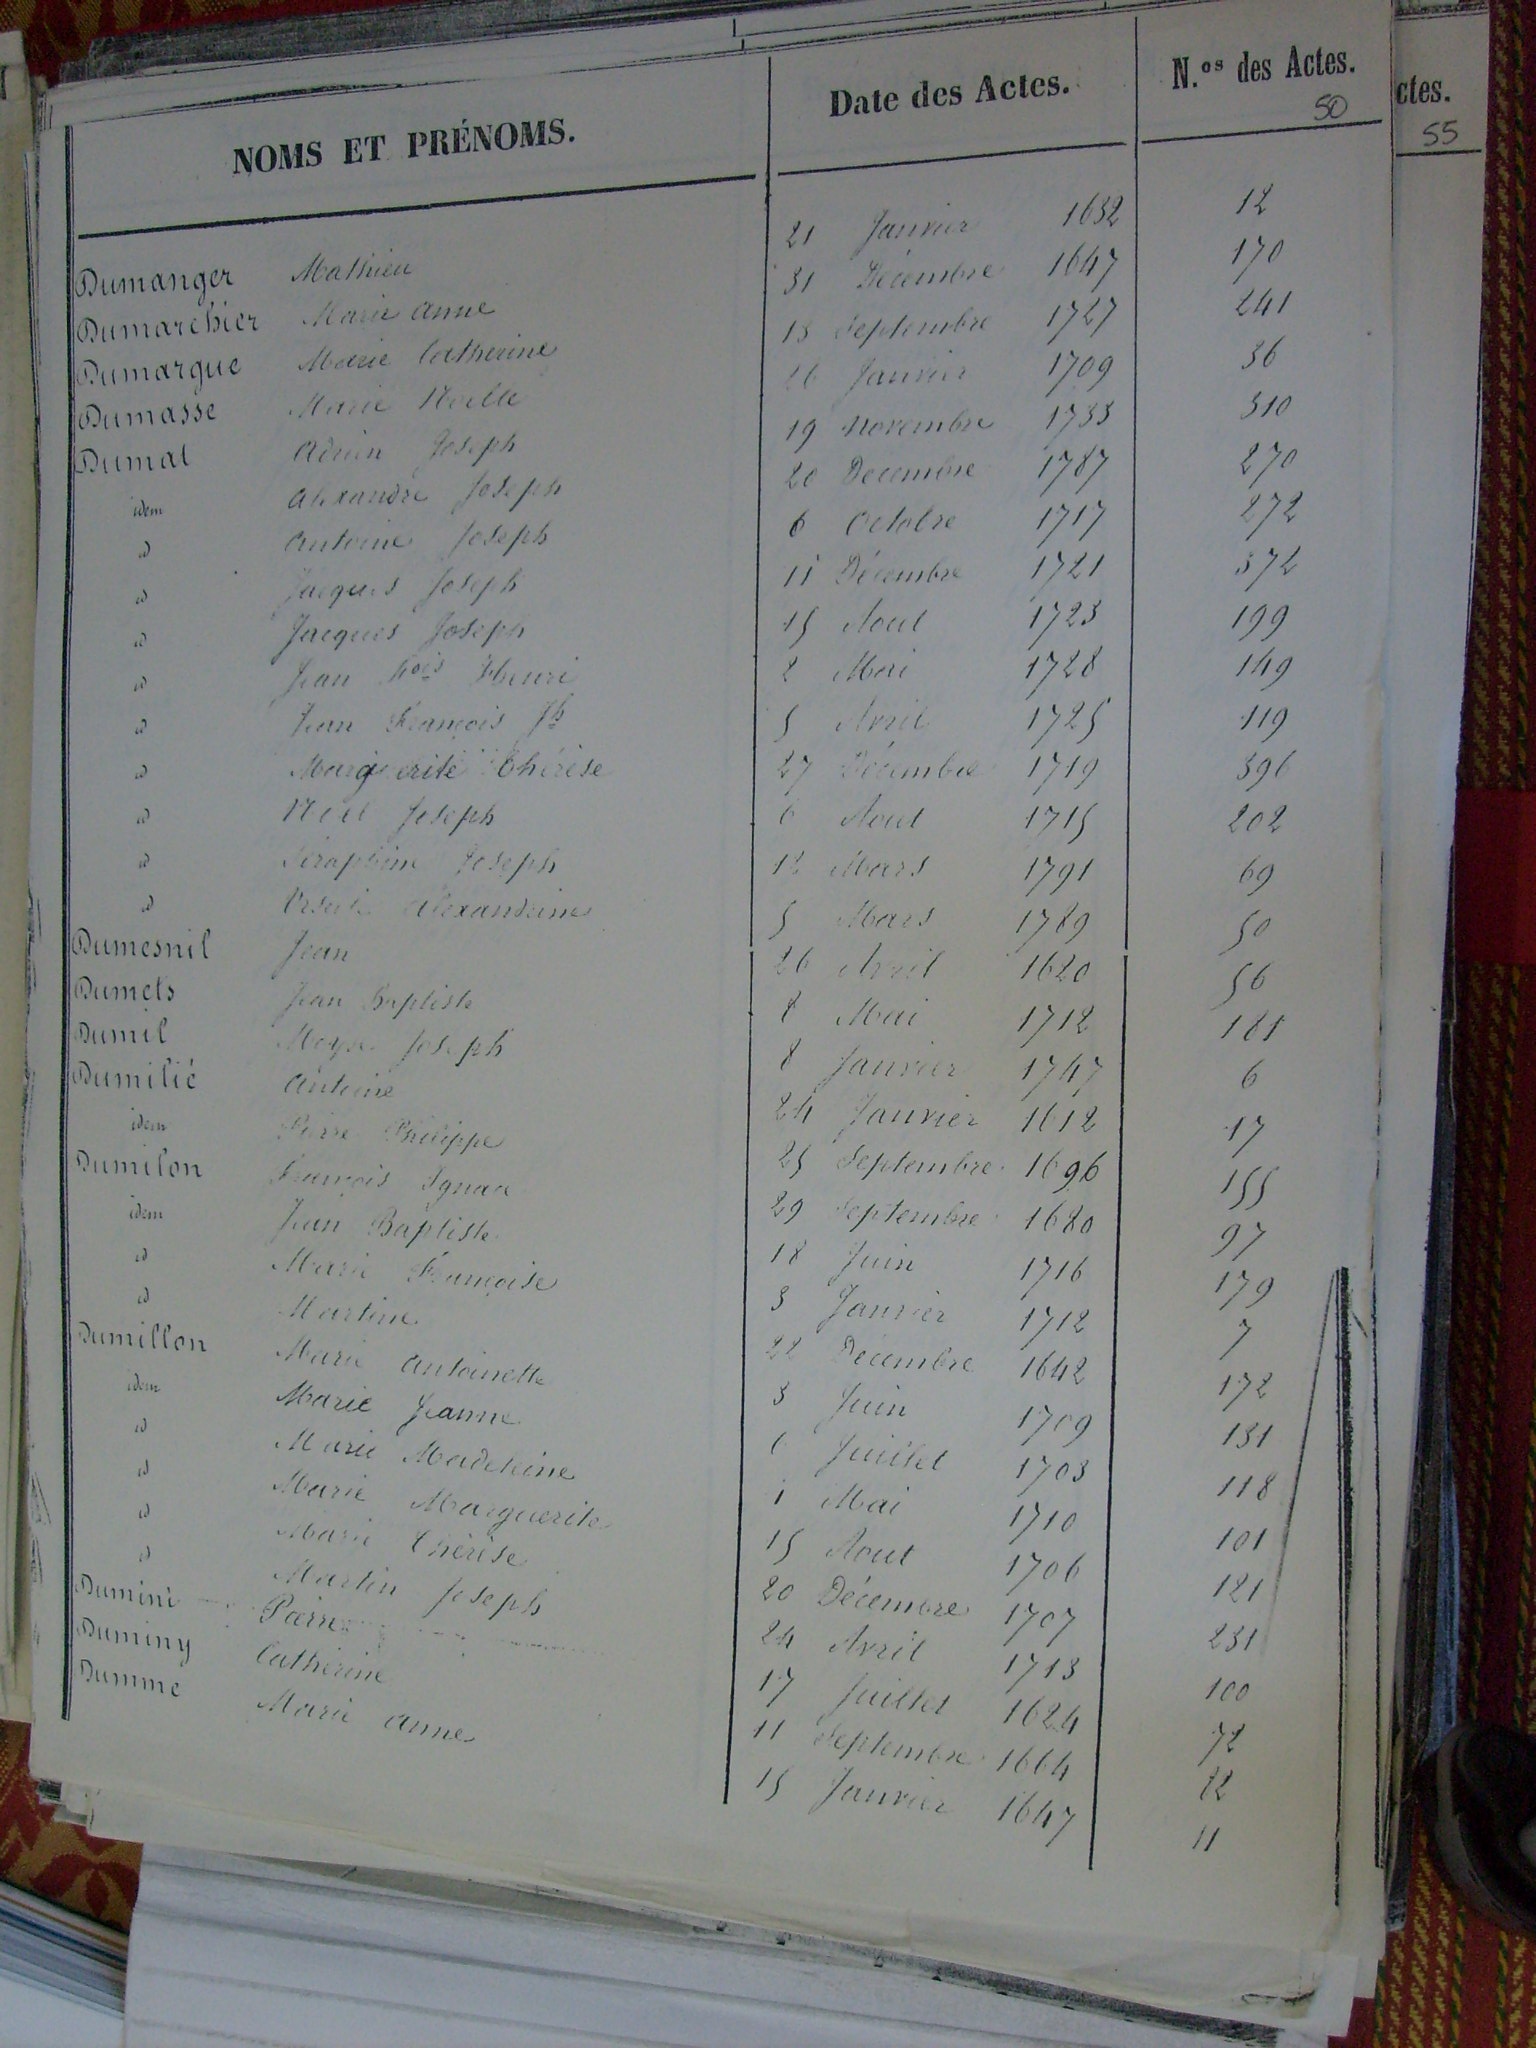 NOMS ET PRÉNOMS. Date des Actes. N.os des Actes.
50
ctes.
55
Dumanger Mathieu 21 Janvier 1632 12
Dumarchier Marie Anne 31 Décembre 1647 170
Dumarque Marie Catherine 13 Septembre 1727 241
Dumasse Marie Noelle 26 Janvier 1709 36
Dumat Adrien Joseph 19 novembre 1733 310
idem Alexandre Joseph 20 Decembre 1787 270
id Antoine Joseph 6 Octobre 1717 272
id Jacques Joseph 11 Décembre 1721 372
id Jacques Joseph 15 Aout 1723 199
id Jean fois Henri 2 Mai 1728 149
id Jean François Jh 5 Avril 1725 119
id Marguerite Thérèse 27 Décembre 1719 396
id Noel Joseph 6 Aout 1715 202
id Séraphim Joseph 12 Mars 1791 69
id Ursule Alexandrine 5 Mars 1789 50
Dumesnil Jean 26 Avril 1620 56
Dumets Jean Baptiste 8 Mai 1712 181
Dumil Moyse Joseph 8 Janvier 1747 6
Dumilié Antoine 24 Janvier 1612 17
idem Pierre Philippe 25 Septembre 1696 155
Dumilon François Ignace 29 Septembre 1680 97
idem Jean Baptiste 18 Juin 1716 179
id Marie Françoise 3 Janvier 1712 7
id Martine 22 Décembre 1642 172
Dumillon Marie Antoinette 3 Juin 1709 131
idem Marie Jeanne 6 Juillet 1703 118
id Marie Madeleine 1 Mai 1710 101
id Marie Marguerite 15 Aout 1706 121
id Marie Thérèse 20 Décembre 1707 231
id Martin Joseph 24 Avril 1713 100
Dumini Pierre 17 Juillet 1624 72
Duminy Catherine 11 Septembre 1664 82
Dumme Marie Anne 15 Janvier 1647 11